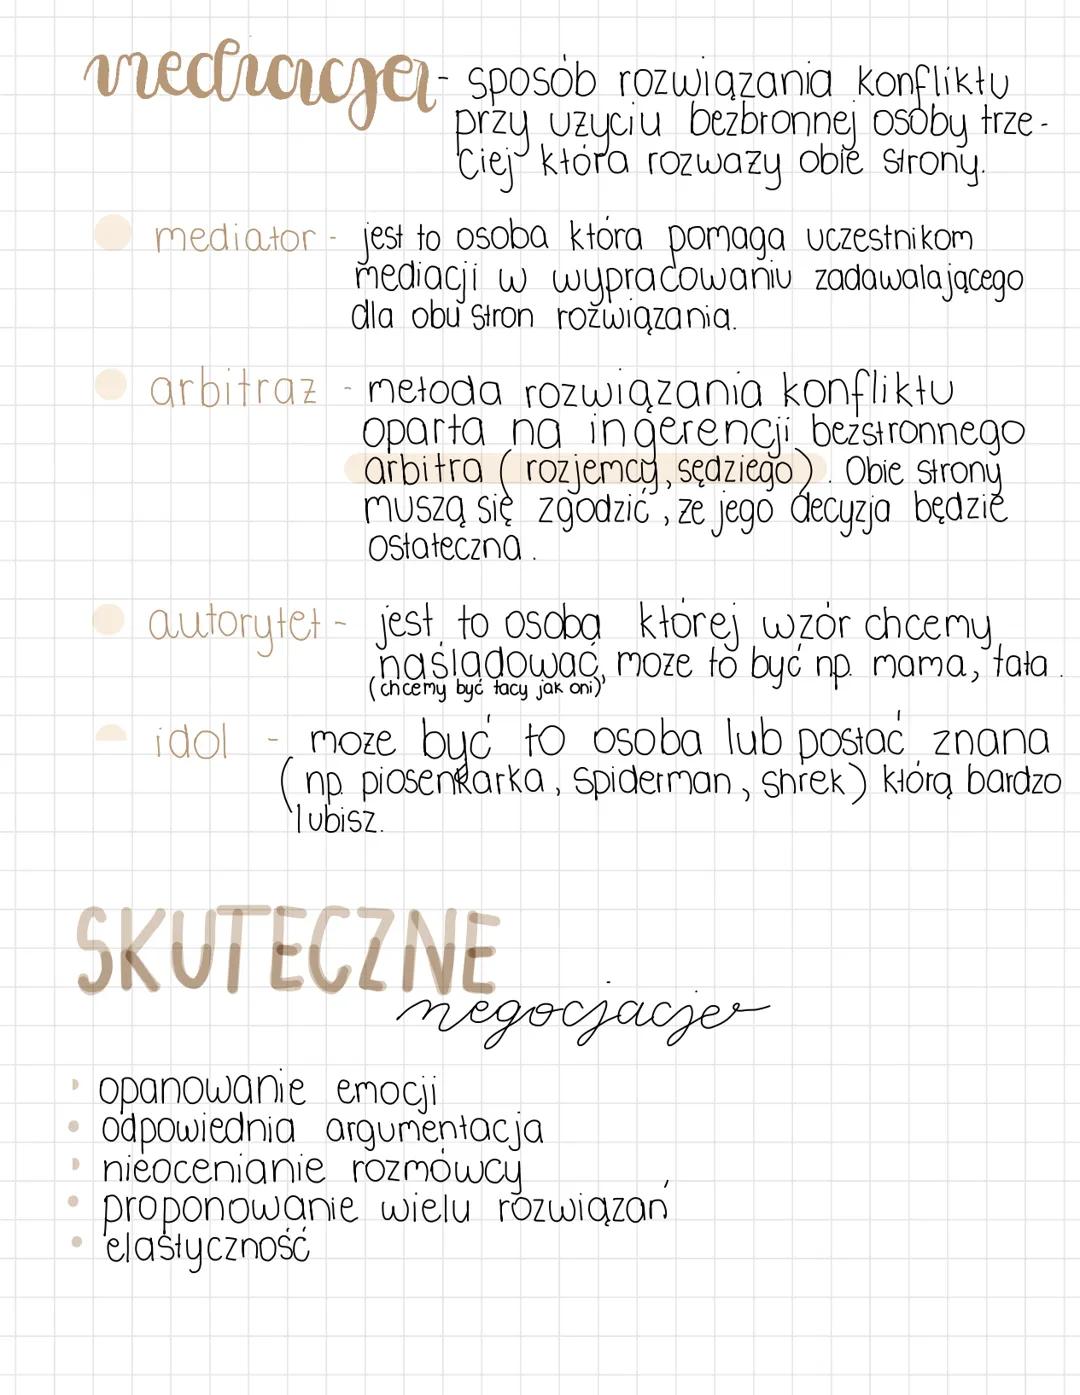 mediacje - sposób rozwiązania konfliktu
przy użyciu bezbronnej osoby trze-
ciej która rozważy obie strony.
mediator - jest to osoba która pomaga uczestnikom
mediacji w wypracowaniu zadawalającego
dla obu stron rozwiązania.
arbitraż - metoda rozwiązania konfliktu
oparta na ingerencji bezstronnego
arbitra (rozjemcy, sędziego). Obie strony
muszą się zgodzić, że jego decyzja będzie
ostateczna.
autorytet - jest to osoba której wzór chcemy
naśladować, może to być np. mama, tata.
(chcemy być tacy jak oni)
idol - może być to osoba lub postać znana
(np. piosenkarka, Spiderman, Shrek) którą bardzo
lubisz.
SKUTECZNE
negocjacje
opanowanie emocji
odpowiednia argumentacja
nieocenianie rozmówcy
proponowanie wielu rozwiązań
elastyczność